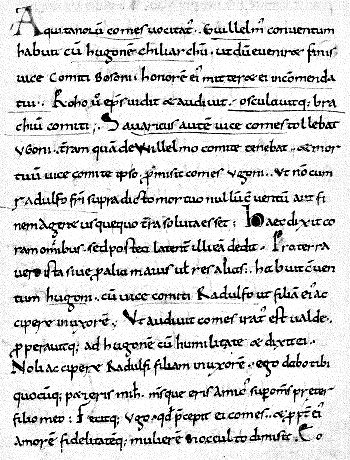 Aquitanorū comes vocitat᷒ Willelm᷒ conventum
habuit cū hugonē chiliarchū. ut dum evenirę finis
vice comiti bosoni honorē ei᷒ mitterę ei in comenda
tui. Roho v̄ ep̄s vidit & audivit. osculavitq; bra
chiū comiti; Savaricus autē vice comes tollebat
ugoni. t̄ram quā de Willelmo comite tenebat. & mor
tuū vice comite ipso, ꝓmisit comes ugoni. ut non cum
radulfo fr̄i supra dicto mortuo nullū c̄ventū aut fi
nem agere usque quo t̄ra soluta esset; Haec dixit co
ram omībus. sed postea latent̄ illi eā dedit. Pro terra
vero ista sive ꝓ alia maius vel res alias. habuit c̄ven
tum hugoni. cū vice comiti Radulfo ut filiā ei᷒ ac
ciperę in uxorē. Ut audivit comes irat᷒ est valde.
ꝓperavitq; ad hugonē cū humilitate & dixit ei.
Noli accipere Radulfi filiam in uxorē. ego dabo tibi
quocūq; pętieris mih̄. eris amic᷒ sup om̄s pręter
filio meo; Fecitq; ugo. qd̄ p̄cepit ei comes. & ei᷒
amorē fidelitatēq; mulierē in occulto dimisit. Eo